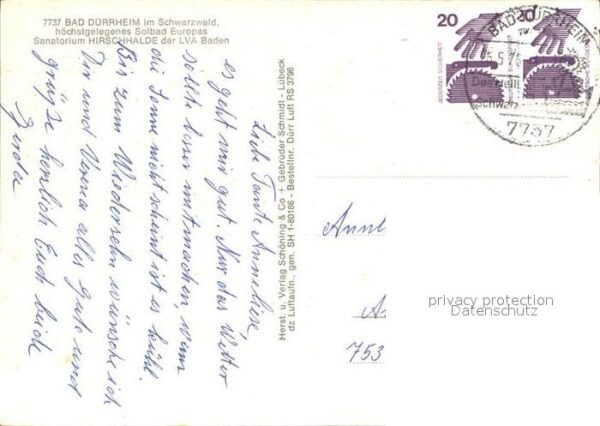 7737 BAD DÜRRHEIM im Schwarzwald,
höchstgelegenes Solbad Europas
Sanatorium HIRSCHHALDE der LVA Baden
Liebe Tante Anneliese,
es geht mir gut. Nur das Wetter
sollte besser mitmachen, wenn
die Sonne nicht scheint ist es kühl.
Bis zum Wiedersehn wünsche ich
Dir und Verena alles Gute und
grüße herzlich Euch beide
Herst. u. Verlag Schöning & Co + Gebrüder Schmidt - Lübeck
dz Luftaufn., gen. SH 1-80186 - Bestellnr. Dürr Luft RS 3796
20
20
JEDERZEIT SICHERHEIT
BAD DÜRRHEIM
7737
Anne
753
privacy protection
Datenschutz